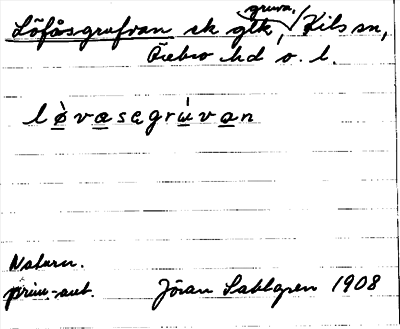 Löfåsgrufvan sk glk, gruva, Kils sn,
Örebro hd o. l.
løvasegruvan
Naturn.
prim.-uet.
Jöran Sahlgren 1908